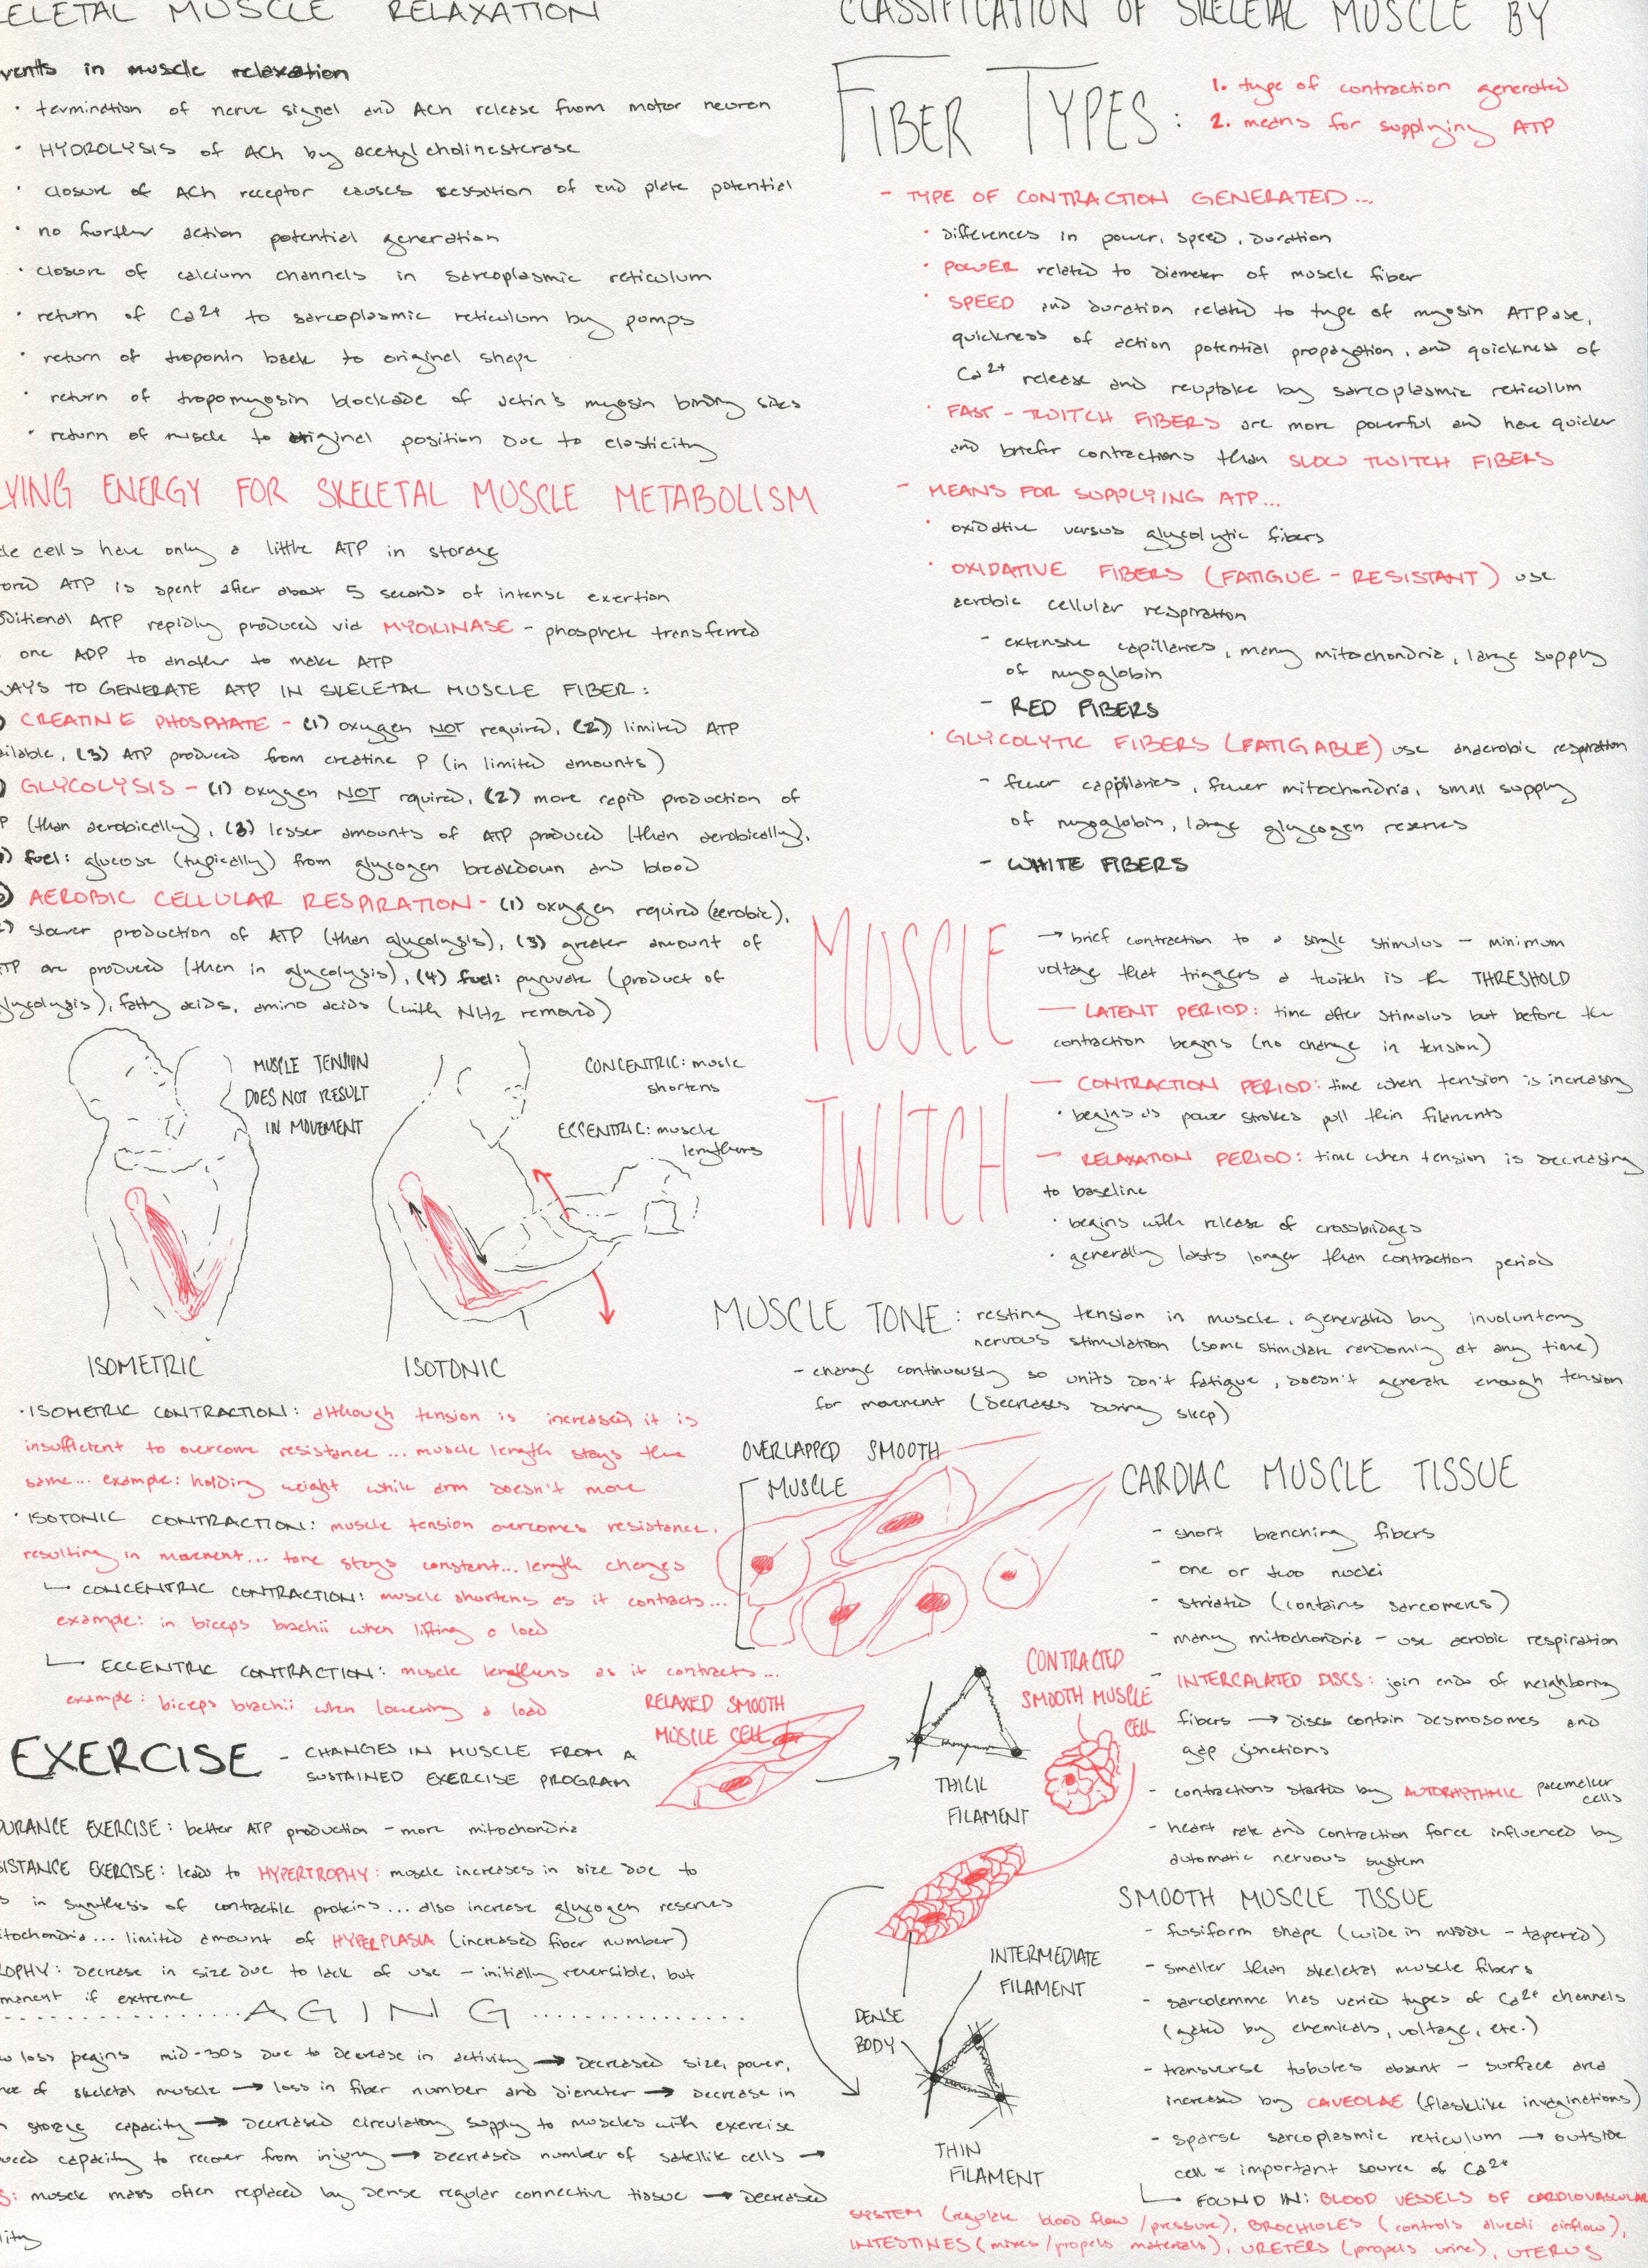 ELETAL MUSCLE RELAXATION
vents in muscle relaxation
· termination of nerve signal and ACh release from motor neuron
· HYDROLYSIS of ACh by acetylcholinesterase
· closure of ACh receptor causes sessation of end plate potential
· no further action potential generation
· closure of calcium channels in sarcoplasmic reticulum
· return of Ca2+ to sarcoplasmic reticulum by pumps
· return of troponin back to original shape
· return of tropomyosin blockade of actin's myosin binding sites
· return of muscle to original position due to elasticity
YING ENERGY FOR SKELETAL MUSCLE METABOLISM
le cells have only a little ATP in storage
ored ATP is spent after about 5 seconds of intense exertion
ditional ATP rapidly produced via MYOKINASE - phosphate transferred
one ADP to another to make ATP
WAYS TO GENERATE ATP IN SKELETAL MUSCLE FIBER:
) CREATINE PHOSPHATE - (1) oxygen NOT required, (2) limited ATP
ailable, (3) ATP produced from creatine P (in limited amounts)
) GLYCOLYSIS - (1) oxygen NOT required, (2) more rapid production of
P (than aerobically), (3) lesser amounts of ATP produced (than aerobically),
) fuel: glucose (typically) from glycogen breakdown and blood
) AEROBIC CELLULAR RESPIRATION - (1) oxygen required (aerobic),
) slower production of ATP (than glycolysis), (3) greater amount of
TP are produced (then in glycolysis), (4) fuel: pyruvate (product of
lycolysis), fatty acids, amino acids (with NH2 removed)
MUSCLE TENSION
DOES NOT RESULT
IN MOVEMENT
CONCENTRIC: muscle
shortens
ECCENTRIC: muscle
lengthens
ISOMETRIC
ISOTONIC
· ISOMETRIC CONTRACTION: although tension is increased it is
insufficient to overcome resistance... muscle length stays the
same... example: holding weight while arm doesn't move
· ISOTONIC CONTRACTION: muscle tension overcomes resistance,
resulting in movement... tone stays constant... length changes
CONCENTRIC CONTRACTION: muscle shortens as it contracts...
example: in biceps brachii when lifting a load
ECCENTRIC CONTRACTION: muscle lengthens as it contracts...
example: biceps brachii when lowering a load
EXERCISE - CHANGES IN MUSCLE FROM A
SUSTAINED EXERCISE PROGRAM
DURANCE EXERCISE: better ATP production - more mitochondria
SISTANCE EXERCISE: leads to HYPERTROPHY: muscle increases in size due to
s in synthesis of contractile proteins... also increase glycogen reserves
itochondria... limited amount of HYPERPLASIA (increased fiber number)
OPHY: decrease in size due to lack of use - initially reversible, but
manent if extreme
AGING
loss begins mid-30s due to decrease in activity → decreased size, power,
nce of skeletal muscle → loss in fiber number and diameter → decrease in
n storage capacity → decreased circulatory supply to muscles with exercise
uced capacity to recover from injury → decreased number of satellite cells →
S: muscle mass often replaced by dense regular connective tissue → decreased
lity
CLASSIFICATION OF SKELETAL MUSCLE BY
FIBER TYPES:
1. type of contraction generated
2. means for supplying ATP
- TYPE OF CONTRACTION GENERATED...
· differences in power, speed, duration
· POWER related to diameter of muscle fiber
· SPEED and duration related to type of myosin ATPase,
quickness of action potential propagation, and quickness of
Ca2+ release and reuptake by sarcoplasmic reticulum
· FAST-TWITCH FIBERS are more powerful and have quicker
and briefer contractions than SLOW TWITCH FIBERS
- MEANS FOR SUPPLYING ATP...
· oxidative versus glycolytic fibers
· OXIDATIVE FIBERS (FATIGUE-RESISTANT) use
aerobic cellular respiration
- extensive capillaries, many mitochondria, large supply
of myoglobin
- RED FIBERS
· GLYCOLYTIC FIBERS (FATIGABLE) use anaerobic respiration
- fewer cappilaries, fewer mitochondria, small supply
of myoglobin, large glycogen reserves
- WHITE FIBERS
MUSCLE
TWITCH
→ brief contraction to a single stimulus - minimum
voltage that triggers a twitch is the THRESHOLD
— LATENT PERIOD: time after stimulus but before the
contraction begins (no change in tension)
— CONTRACTION PERIOD: time when tension is increasing
· begins as power strokes pull thin filaments
— RELAXATION PERIOD: time when tension is decreasing
to baseline
· begins with release of crossbridges
· generally lasts longer than contraction period
MUSCLE TONE: resting tension in muscle, generated by involuntary
nervous stimulation (some stimulate randomly at any time)
- change continuously so units don't fatigue, doesn't generate enough tension
for movement (decreases during sleep)
OVERLAPPED SMOOTH
MUSCLE
RELAXED SMOOTH
MUSCLE CELL
CONTRACTED
SMOOTH MUSCLE
CELL
THICK
FILAMENT
INTERMEDIATE
FILAMENT
DENSE
BODY
THIN
FILAMENT
CARDIAC MUSCLE TISSUE
- short branching fibers
- one or two nuclei
- striated (contains sarcomeres)
- many mitochondria - use aerobic respiration
- INTERCALATED DISCS: join ends of neighboring
fibers → discs contain desmosomes and
gap junctions
- contractions started by AUTORHYTHMIC pacemaker
cells
- heart rate and contraction force influenced by
automatic nervous system
SMOOTH MUSCLE TISSUE
- fusiform shape (wide in middle - tapered)
- smaller than skeletal muscle fibers
- sarcolemma has varied types of Ca2+ channels
(gated by chemicals, voltage, etc.)
- transverse tubules absent - surface area
increased by CAVEOLAE (flasklike invaginations)
- sparse sarcoplasmic reticulum → outside
cell = important source of Ca2+
FOUND IN: BLOOD VESSELS OF CARDIOVASCULAR
SYSTEM (regulate blood flow/pressure), BROCHIOLES (controls alveoli airflow),
INTESTINES (mixes/propels materials), URETERS (propels urine), UTERUS